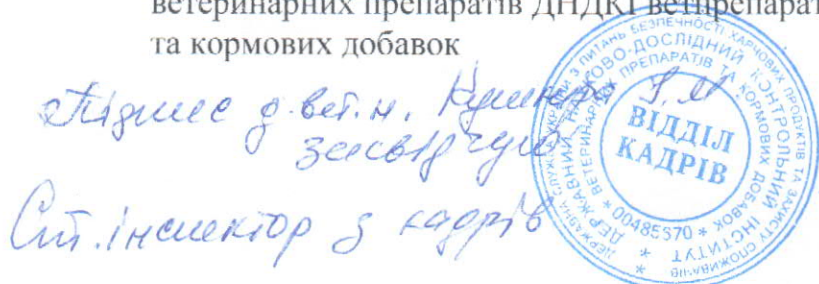 ветеринарних препаратів ДНДКІ ветпрепаратів
та кормових добавок
Підпис д.вет.н. Кушніра І.М
засвідчую
Ст. інспектор з кадрів
ДЕРЖАВНА СЛУЖБА УКРАЇНИ З ПИТАНЬ БЕЗПЕЧНОСТІ ХАРЧОВИХ ПРОДУКТІВ ТА ЗАХИСТУ СПОЖИВАЧІВ *
ДЕРЖАВНИЙ НАУКОВО-ДОСЛІДНИЙ КОНТРОЛЬНИЙ ІНСТИТУТ *
ВЕТЕРИНАРНИХ ПРЕПАРАТІВ ТА КОРМОВИХ ДОБАВОК
* 00485670 *
ВІДДІЛ
КАДРІВ